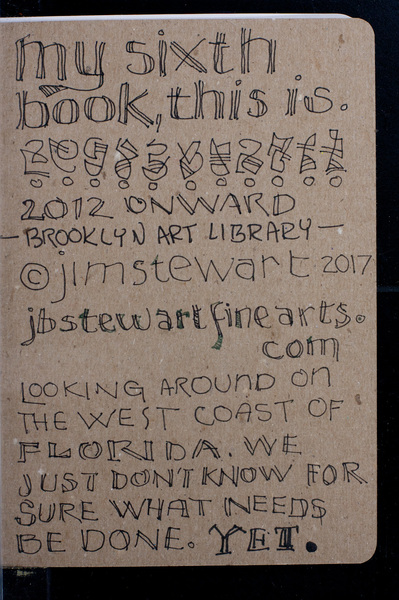 my sixth
book, this is.
2012 ONWARD
— BROOKLYN ART LIBRARY —
© jimstewart 2017
jbstewartfinearts.
com
LOOKING AROUND ON
THE WEST COAST OF
FLORIDA. WE
JUST DON'T KNOW FOR
SURE WHAT NEEDS
BE DONE. YET.